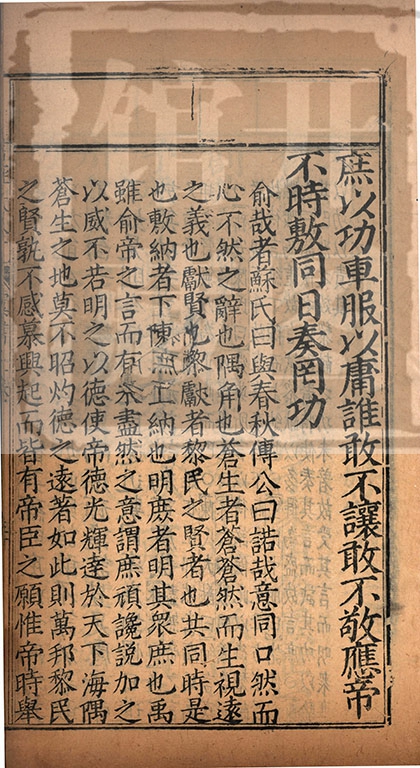 庶以功車服以庸誰敢不讓敢不敬應帝
不時敷同日奏罔功
俞哉者蘇氏曰與春秋傳公曰諾哉意同口然而
心不然之辭也隅角也蒼生者蒼蒼然而生視遠
之義也獻賢也黎獻者黎民之賢者也共同時是
也敷納者下陳而上納也明庶者明其衆庶也禹
雖俞帝之言而有未盡然之意謂庶頑讒說加之
以威不若明之以德使帝德光輝達於天下海隅
蒼生之地莫不昭灼德之遠著如此則萬邦黎民
之賢孰不感慕興起而皆有帝臣之願惟帝時舉